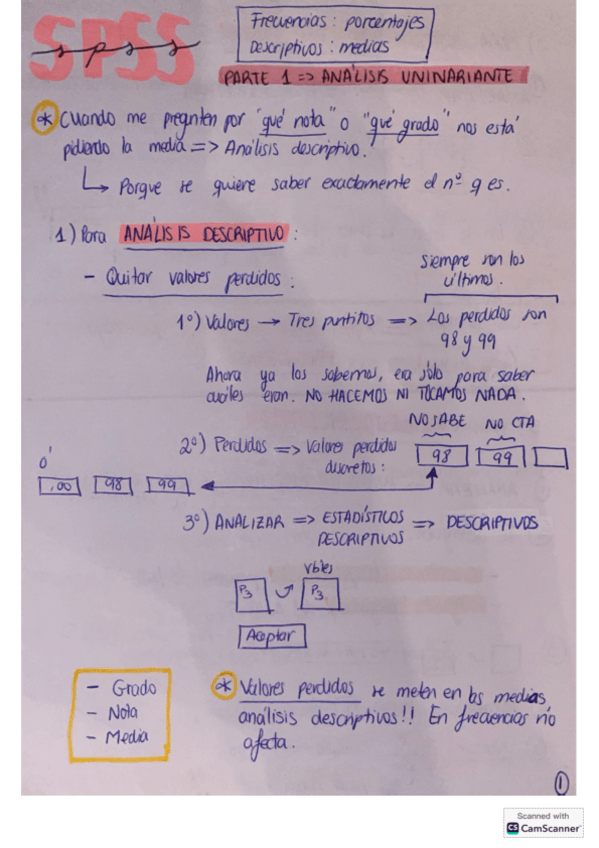 SPSS
spss
Frecuencias: porcentajes
Descriptivos: medias
PARTE 1 => ANÁLISIS UNINARIANTE
* Cuando me pregnten por "qué nota" o "qué grado" nos está
pidiendo la media => Análisis descriptivo.
↳ Porque se quiere saber exactamente el nº q es.
1) Para ANÁLISIS DESCRIPTIVO:
- Quitar valores perdidos:
siempre son los
últimos.
1º) Valores → Tres puntitos => Los perdidos son
98 y 99
Ahora ya los sabemos, era sólo para saber
cuáles eran. NO HACEMOS NI TOCAMOS NADA.
NO SABE NO CTA
2º) Perdidos => Valores perdidos
discretos: 98 99
Ó
,00 98 99
3º) ANALIZAR => ESTADÍSTICOS => DESCRIPTIVOS
DESCRIPTIVOS
vbles
P3 P3
Aceptar
- Grado
- Nota
- Media
* Valores perdidos se meten en las medias,
análisis descriptivos!! En frecuencias no
afecta.
1
Scanned with
CS CamScanner